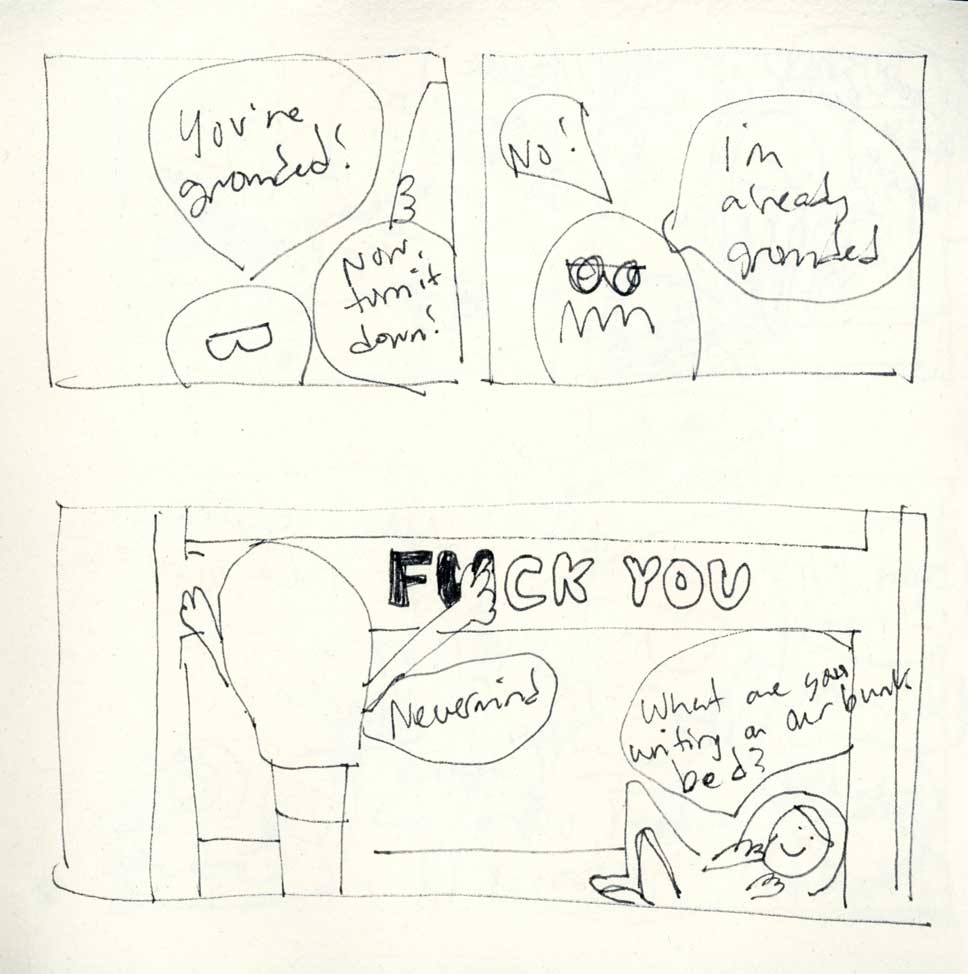 You're
grounded!
Now,
turn it
down!
No!
I'm
already
grounded
FUCK YOU
Nevermind
What are you
writing on our bunk
bed?